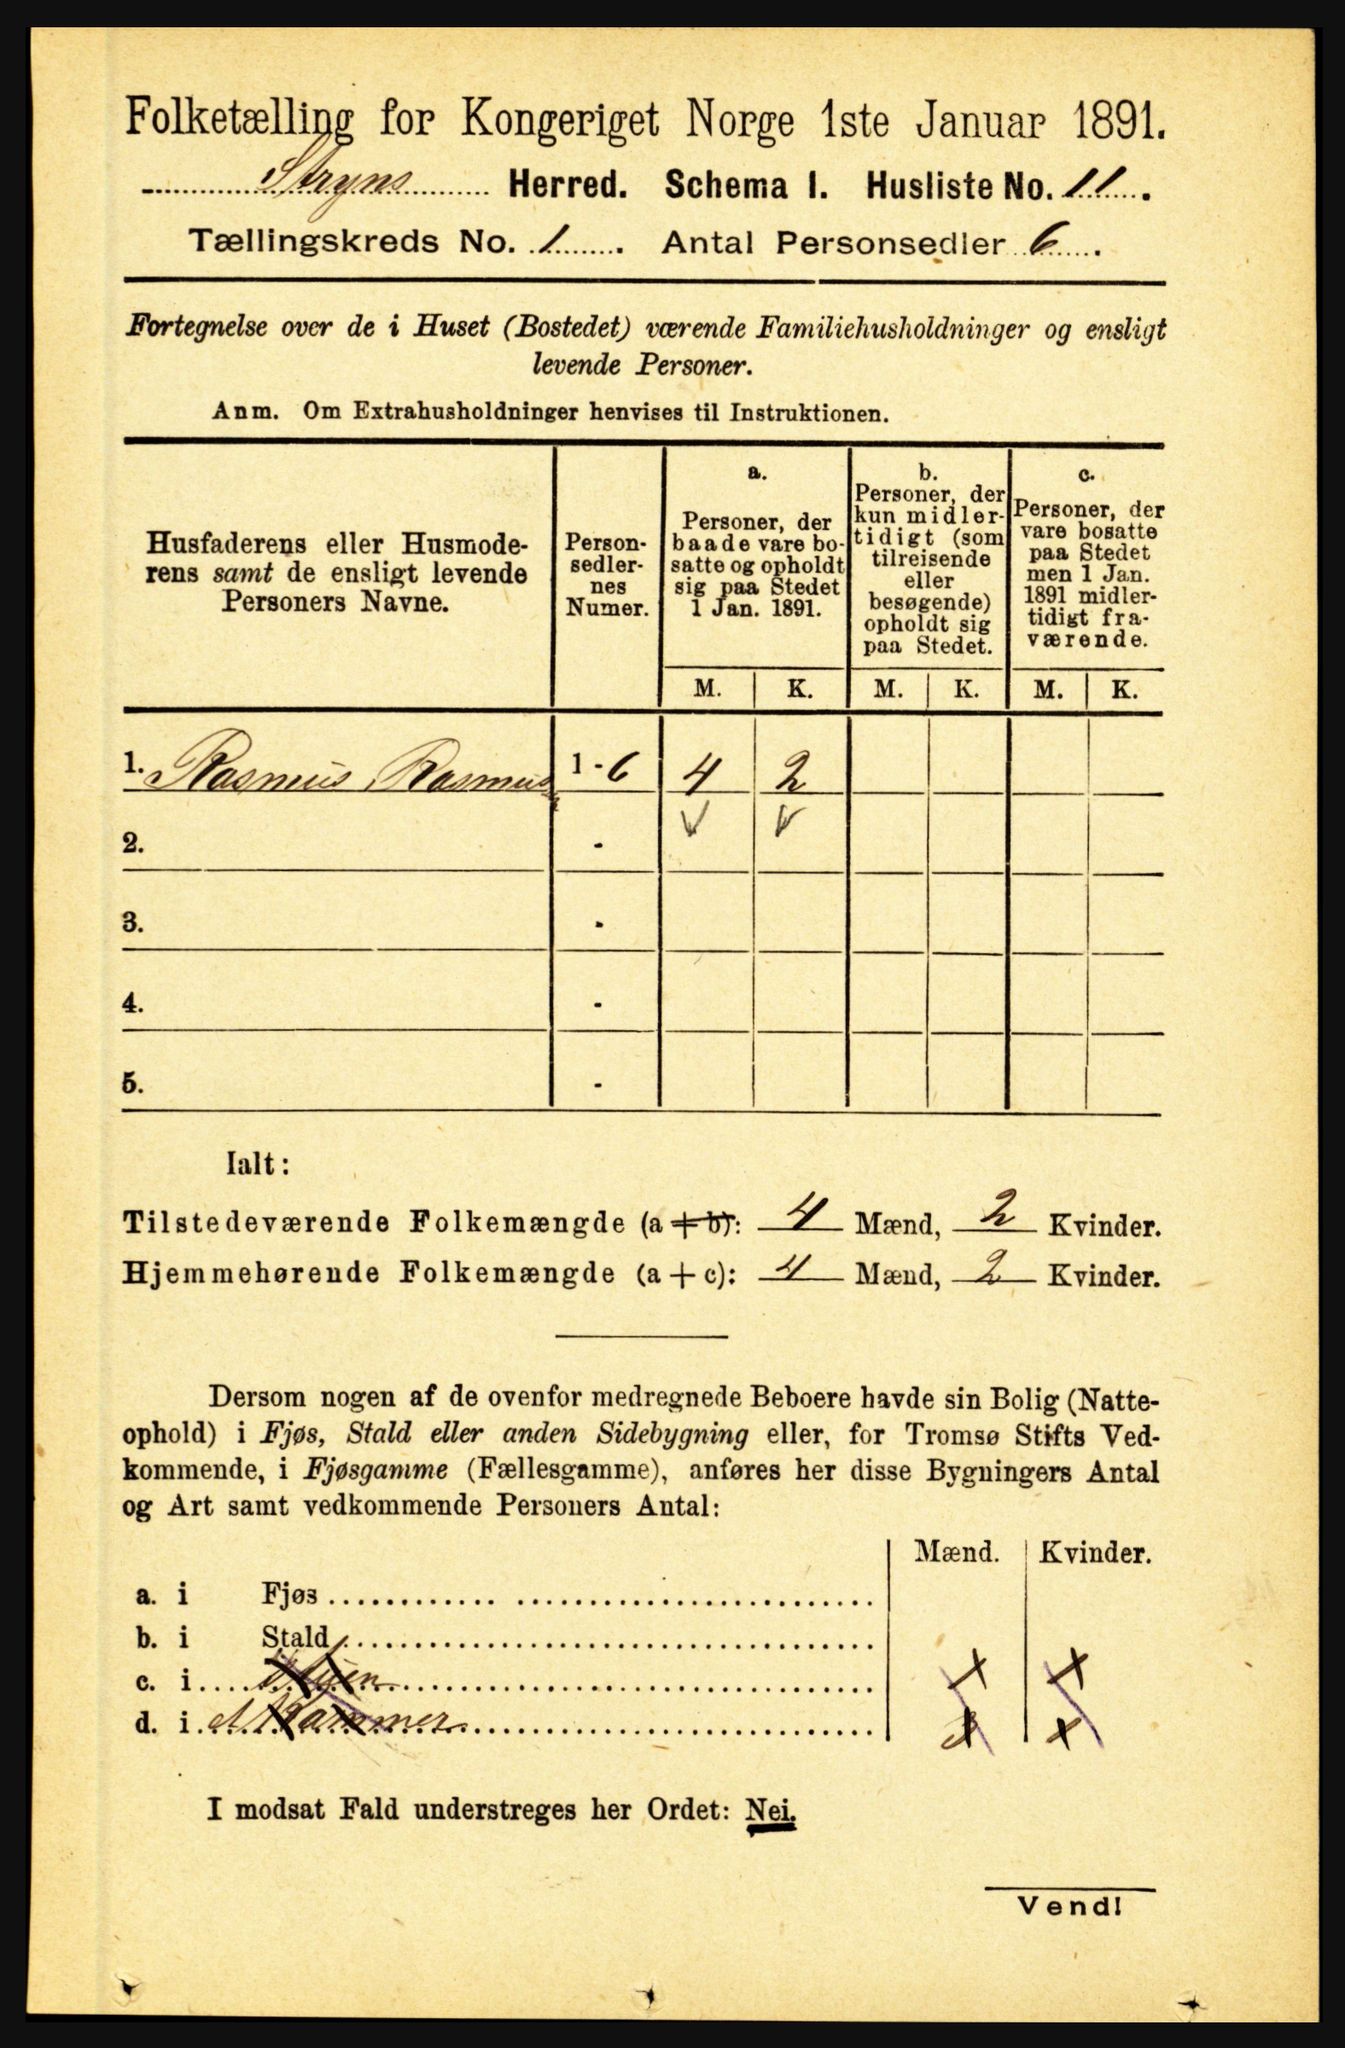 Folketælling for Kongeriget Norge 1ste Januar 1891.
Stryns Herred. Schema I. Husliste No. 11.
Tællingskreds No. 1. Antal Personsedler 6.
Fortegnelse over de i Huset (Bostedet) værende Familiehusholdninger og ensligt
levende Personer.
Anm. Om Extrahusholdninger henvises til Instruktionen.
Husfaderens eller Husmode-
rens samt de ensligt levende
Personers Navne.
Person-
sedler-
nes
Numer.
a.
Personer, der
baade vare bo-
satte og opholdt
sig paa Stedet
1 Jan. 1891.
b.
Personer, der
kun midler-
tidigt (som
tilreisende
eller
besøgende)
opholdt sig
paa Stedet.
c.
Personer, der
vare bosatte
paa Stedet
men 1 Jan.
1891 midler-
tidigt fra-
værende.
M. K. M. K. M. K.
1. Rasmus Rasmus 1 - 6 4 2
2. -
3. -
4. -
5. -
Ialt:
Tilstedeværende Folkemængde (a + b): 4 Mænd, 2 Kvinder.
Hjemmehørende Folkemængde (a + c): 4 Mænd, 2 Kvinder.
Dersom nogen af de ovenfor medregnede Beboere havde sin Bolig (Natte-
ophold) i Fjøs, Stald eller anden Sidebygning eller, for Tromsø Stifts Ved-
kommende, i Fjøsgamme (Fællesgamme), anføres her disse Bygningers Antal
og Art samt vedkommende Personers Antal:
Mænd. Kvinder.
a. i Fjøs
b. i Stald
c. i
d. i
I modsat Fald understreges her Ordet: Nei.
Vend!